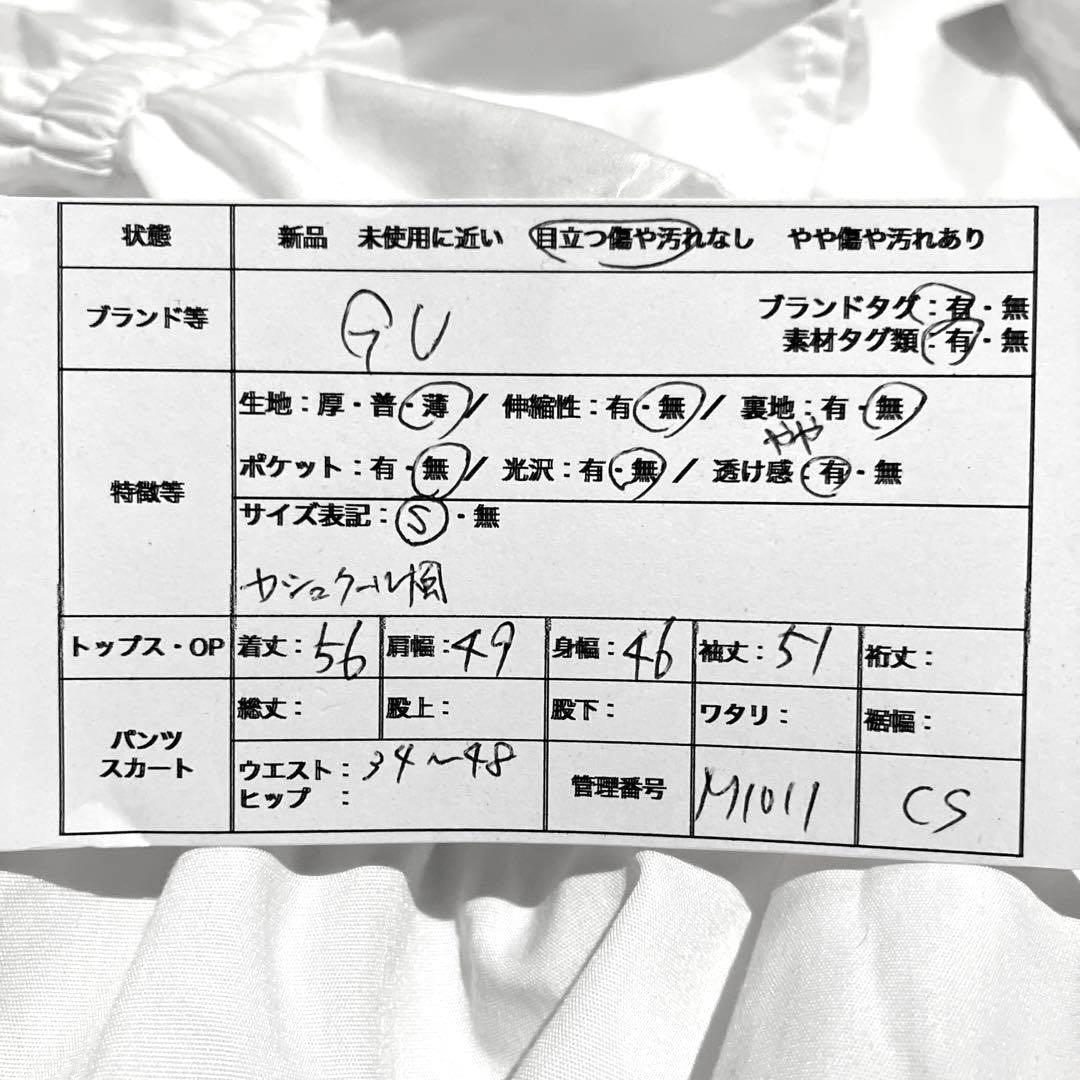 状態 新品 未使用に近い 目立つ傷や汚れなし やや傷や汚れあり
ブランド等 GU ブランドタグ：有・無
素材タグ類：有・無
特徴等 生地：厚・普・薄 / 伸縮性：有・無 / 裏地：有・無
やや
ポケット：有・無 / 光沢：有・無 / 透け感：有・無
サイズ表記：S・無
カシュクール風
トップス・OP 着丈：56 肩幅：49 身幅：46 袖丈：51 裄丈：
パンツ スカート 総丈： 股上： 股下： ワタリ： 裾幅：
ウエスト：34〜48
ヒップ ： 管理番号 M1011 CS